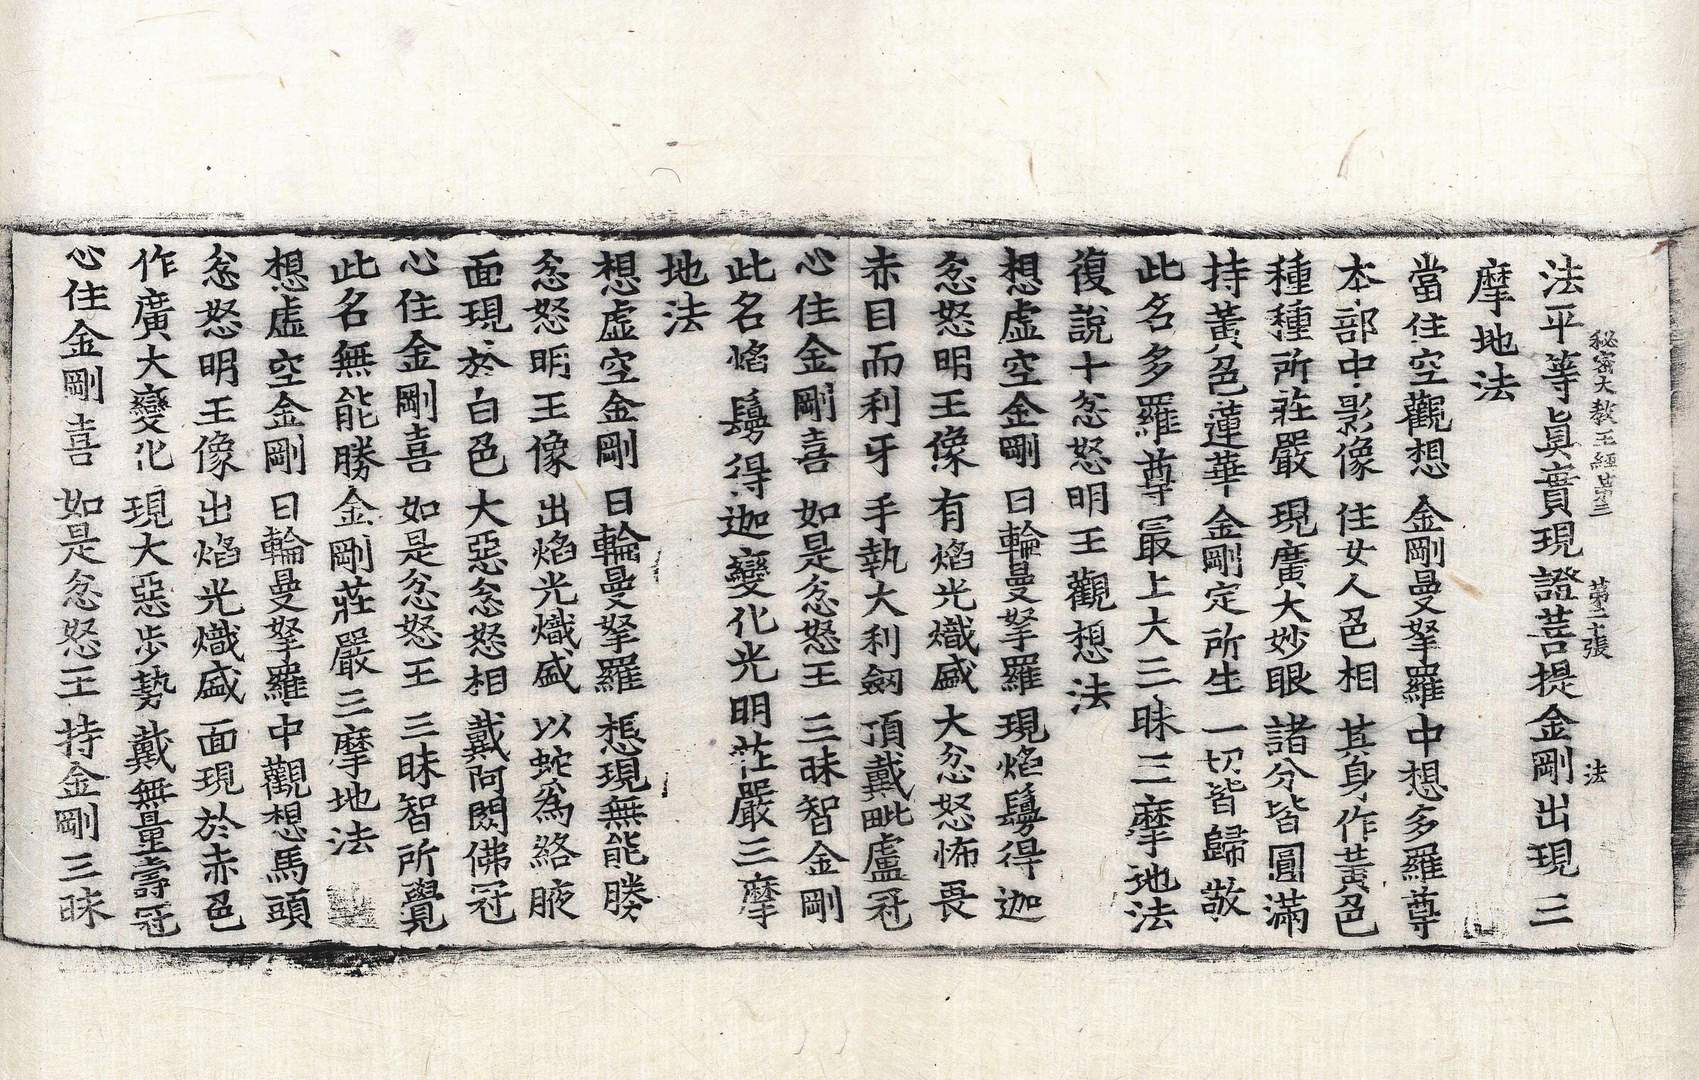 秘密大教王經第三 第二十張 法
法平等眞實現證菩提金剛出現三
摩地法
當住空觀想 金剛曼拏羅 中想多羅尊
本部中影像 住女人色相 其身作黃色
種種所莊嚴 現廣大妙眼 諸分皆圓滿
持黃色蓮華 金剛定所生 一切皆歸敬
此名多羅尊冣上大三昧三摩地法
復說十忿怒明王觀想法
想虛空金剛 日輪曼拏羅 現焰鬘得迦
忿怒明王像 有焰光熾盛 大忿怒怖畏
赤目而利牙 手執大利劔 頂戴毗盧冠
心住金剛喜 如是忿怒王 三昧智金剛
此名焰鬘得迦變化光明莊嚴三摩
地法
想虛空金剛 日輪曼拏羅 想現無能勝
忿怒明王像 出焰光熾盛 以蛇為絡腋
面現於白色 大惡忿怒相 戴阿閦佛冠
心住金剛喜 如是忿怒王 三昧智所覺
此名無能勝金剛莊嚴三摩地法
想虛空金剛 日輪曼拏羅 中觀想馬頭
忿怒明王像 出焰光熾盛 面現於赤色
作廣大變化 現大惡步勢 戴無量壽冠
心住金剛喜 如是忿怒王 持金剛三昧